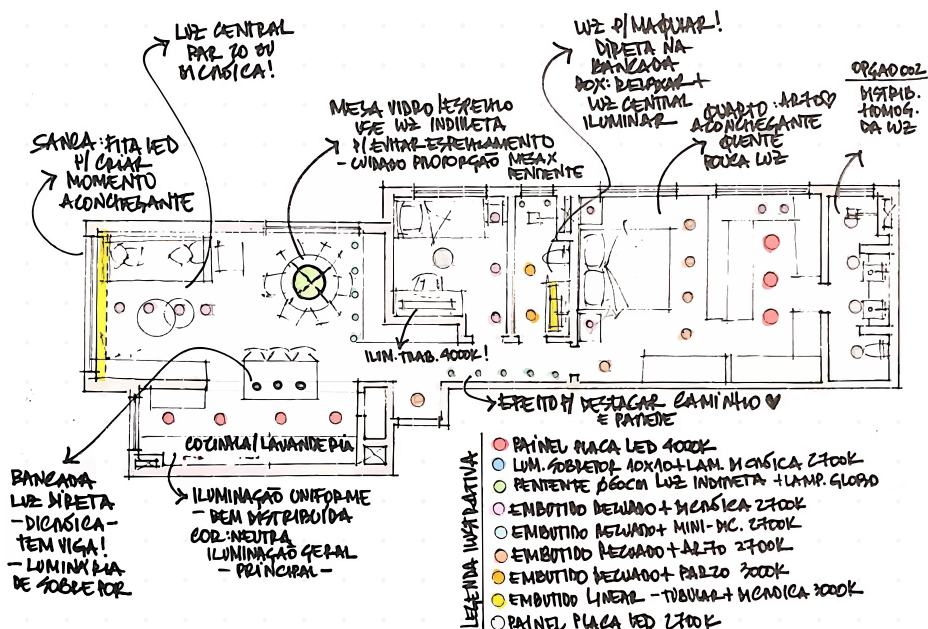 LUZ CENTRAL
PAR 20 OU
DICRÓICA!
SANCA: FITA LED
P/ CRIAR
MOMENTO
ACONCHEGANTE
MESA VIDRO/ESPELHO
USE LUZ INDIRETA
P/ EVITAR ESPELHAMENTO
- CUIDADO PROPORÇÃO MESA X
PENDENTE
LUZ P/ MAQUIAR!
DIRETA NA
BANCADA
BOX: RELAXAR +
LUZ CENTRAL
ILUMINAR
QUARTO: AR70
ACONCHEGANTE
QUENTE
POUCA LUZ
OPÇÃO 002
DISTRIB.
HOMOG.
DA LUZ
ILUM. TRAB. 4000K!
EFEITO P/ DESTACAR CAMINHO
E PAREDE
COZINHA/LAVANDERIA
BANCADA
LUZ DIRETA
- DICRÓICA -
TEM VIGA!
- LUMINÁRIA
DE SOBREPOR
ILUMINAÇÃO UNIFORME
- BEM DISTRIBUIDA
COR: NEUTRA
ILUMINAÇÃO GERAL
- PRINCIPAL -
LEGENDA ILUSTRATIVA
PAINEL PLACA LED 4000K
LUM. SOBREPOR 10X10 + LAM. DICRÓICA 2700K
PENDENTE Ø60CM LUZ INDIRETA + LAMP. GLOBO
EMBUTIDO RECUADO + DICRÓICA 2700K
EMBUTIDO RECUADO + MINI-DIC. 2700K
EMBUTIDO RECUADO + AR70 2700K
EMBUTIDO RECUADO + PAR20 3000K
EMBUTIDO LINEAR - TUBULAR + DICRÓICA 3000K
PAINEL PLACA LED 2700K